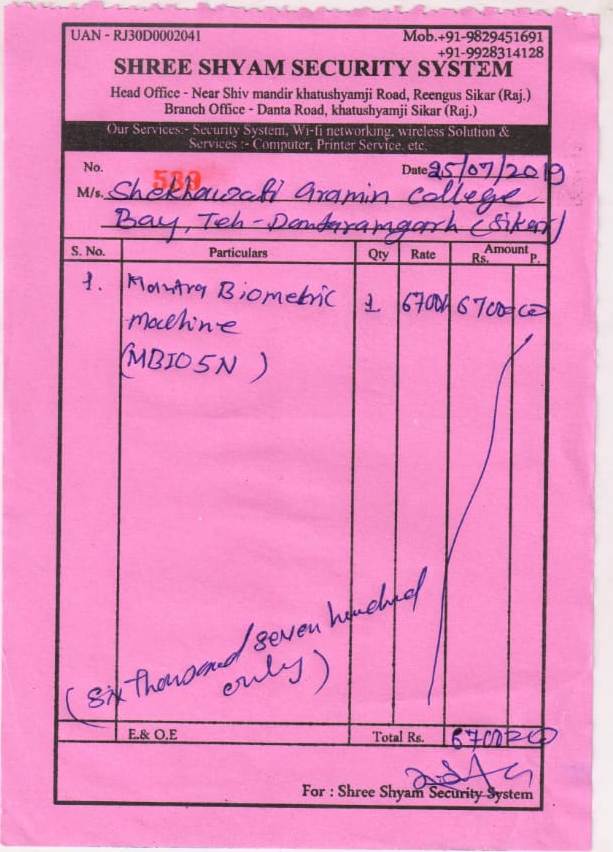 UAN - RJ30D0002041 Mob.+91-9829451691
+91-9928314128
SHREE SHYAM SECURITY SYSTEM
Head Office - Near Shiv mandir khatushyamji Road, Reengus Sikar (Raj.)
Branch Office - Danta Road, khatushyamji Sikar (Raj.)
Our Services:- Security System, Wi-fi networking, wireless Solution &
Services :- Computer, Printer Service, etc.
No. 539 Date 25/07/2019
M/s. Shekhawati Gramin College
Bay, Teh-Dantaramgarh (Sikar)
S. No. Particulars Qty Rate Amount
Rs. P.
1. Mantra Biometric 1 6700/- 6700=00
Machine
(MBIO5N)
(six thousand seven hundred
only)
E.& O.E Total Rs. 6700=00
For : Shree Shyam Security System